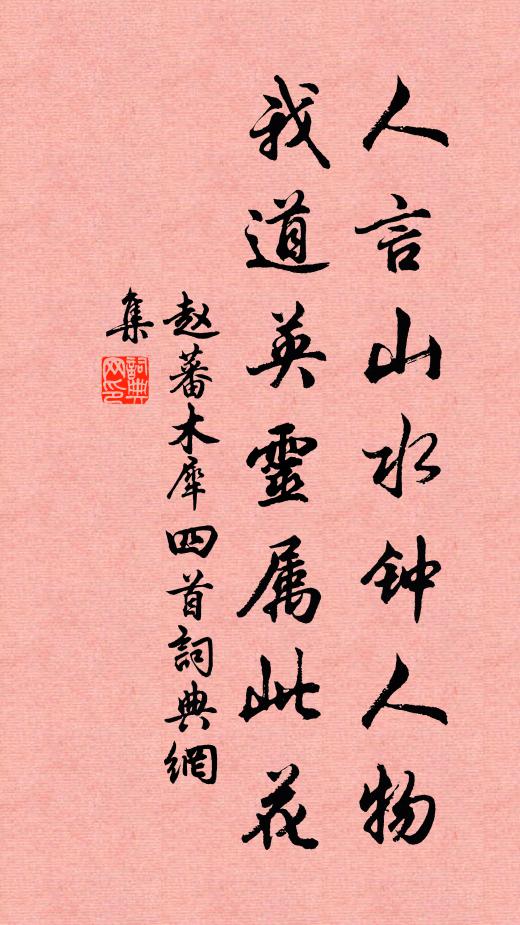 人言山水钟人物
我道英靈属此花
赵蕃木犀四首詞典網
集
詞典網印